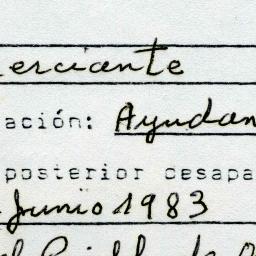 erciante
ación: Ayudan
posterior desapa
Junio 1983